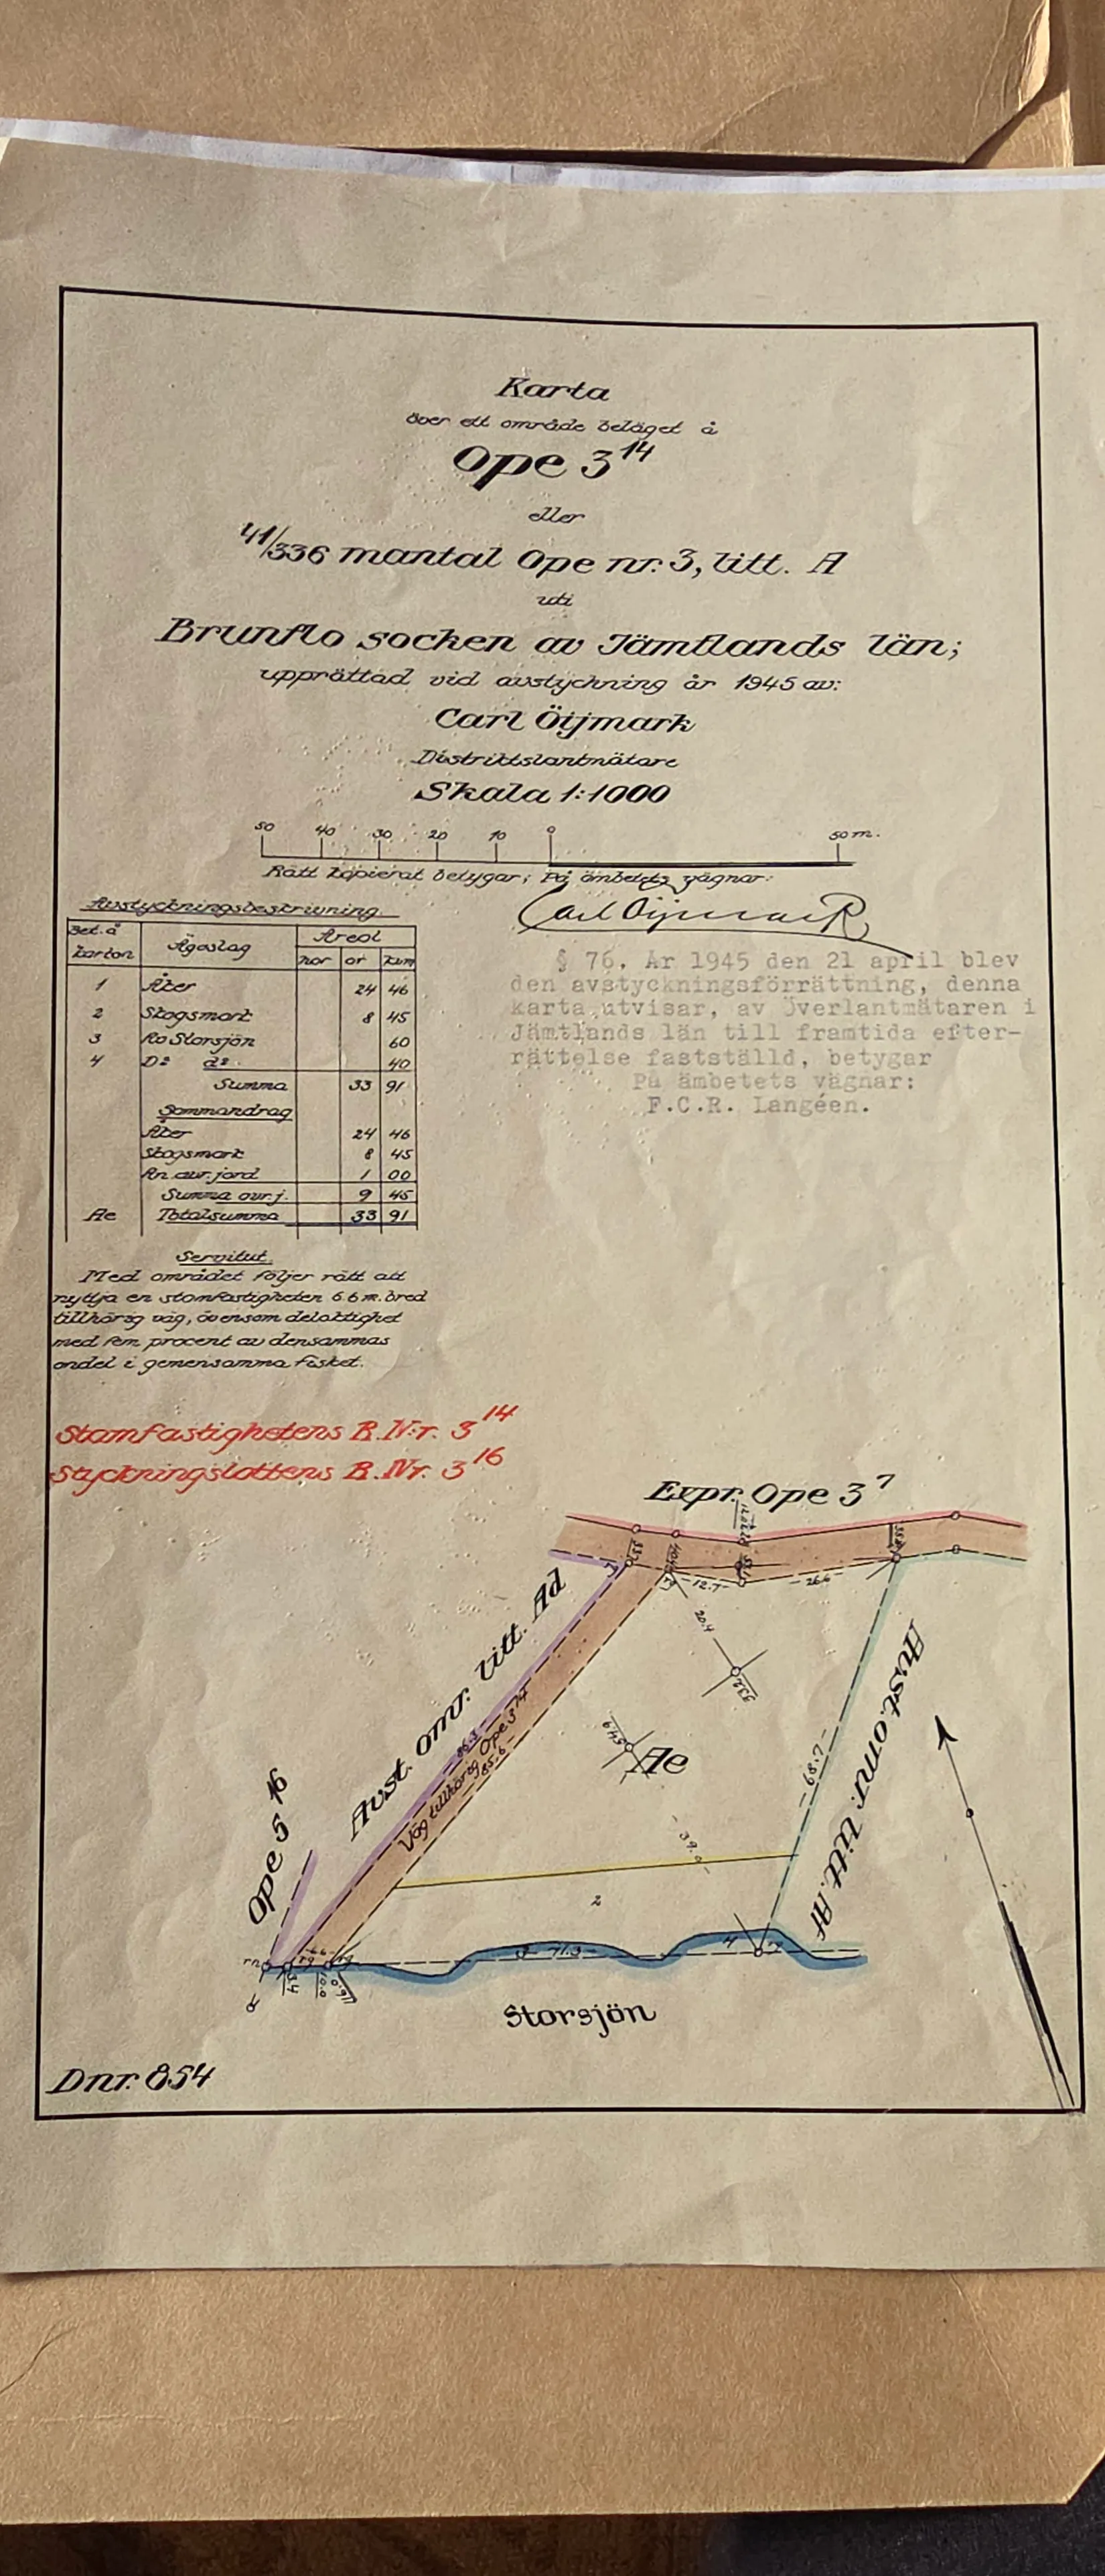 Karta
över ett område beläget å
Ope 3¹⁴
eller
41/336 mantal Ope nr. 3, litt. A
uti
Brunflo socken av Jämtlands län;
upprättad vid avstyckning år 1945 av:
Carl Öijmark
Distriktslantmätare
Skala 1:1000
50 40 30 20 10 0 50 m.
Rätt kopierat betygar; På ämbetets vägnar:
Carl Öijmark
Avstyckningsbeskrivning
Bet. å kartan Ägoslag Areal
har ar kvm
1 Åker 24 46
2 Skogsmark 8 45
3 Av Storsjön 60
4 D:o d:o 40
Summa 33 91
Sammandrag
Åker 24 46
Skogsmark 8 45
An. avr. jord 1 00
Summa avr. j. 9 45
Ae Totalsumma 33 91
§ 76. År 1945 den 21 april blev
den avstyckningsförrättning, denna
karta utvisar, av Överlantmätaren i
Jämtlands län till framtida efter-
rättelse fastställd, betygar
På ämbetets vägnar:
F.C.R. Langéen.
Servitut.
Med området följer rätt att
nyttja en stamfastigheten 6.6 m. bred
tillhörig väg, ävensom delaktighet
med fem procent av densammas
andel i gemensamma fisket.
Stamfastighetens R.Nr. 3¹⁴
Styckningslottens R.Nr. 3¹⁶
Expr. Ope 3⁷
12.7
26.6
20.4
33.2
Avst. omr. litt. Ad
86.3
Väg tillhörig Ope 3¹⁴
85.6
Ae
68.7
Avst. omr. litt. Af
Ope 5¹⁶
39.0
2
6.6
3
71.3
4
Storsjön
Dnr. 854